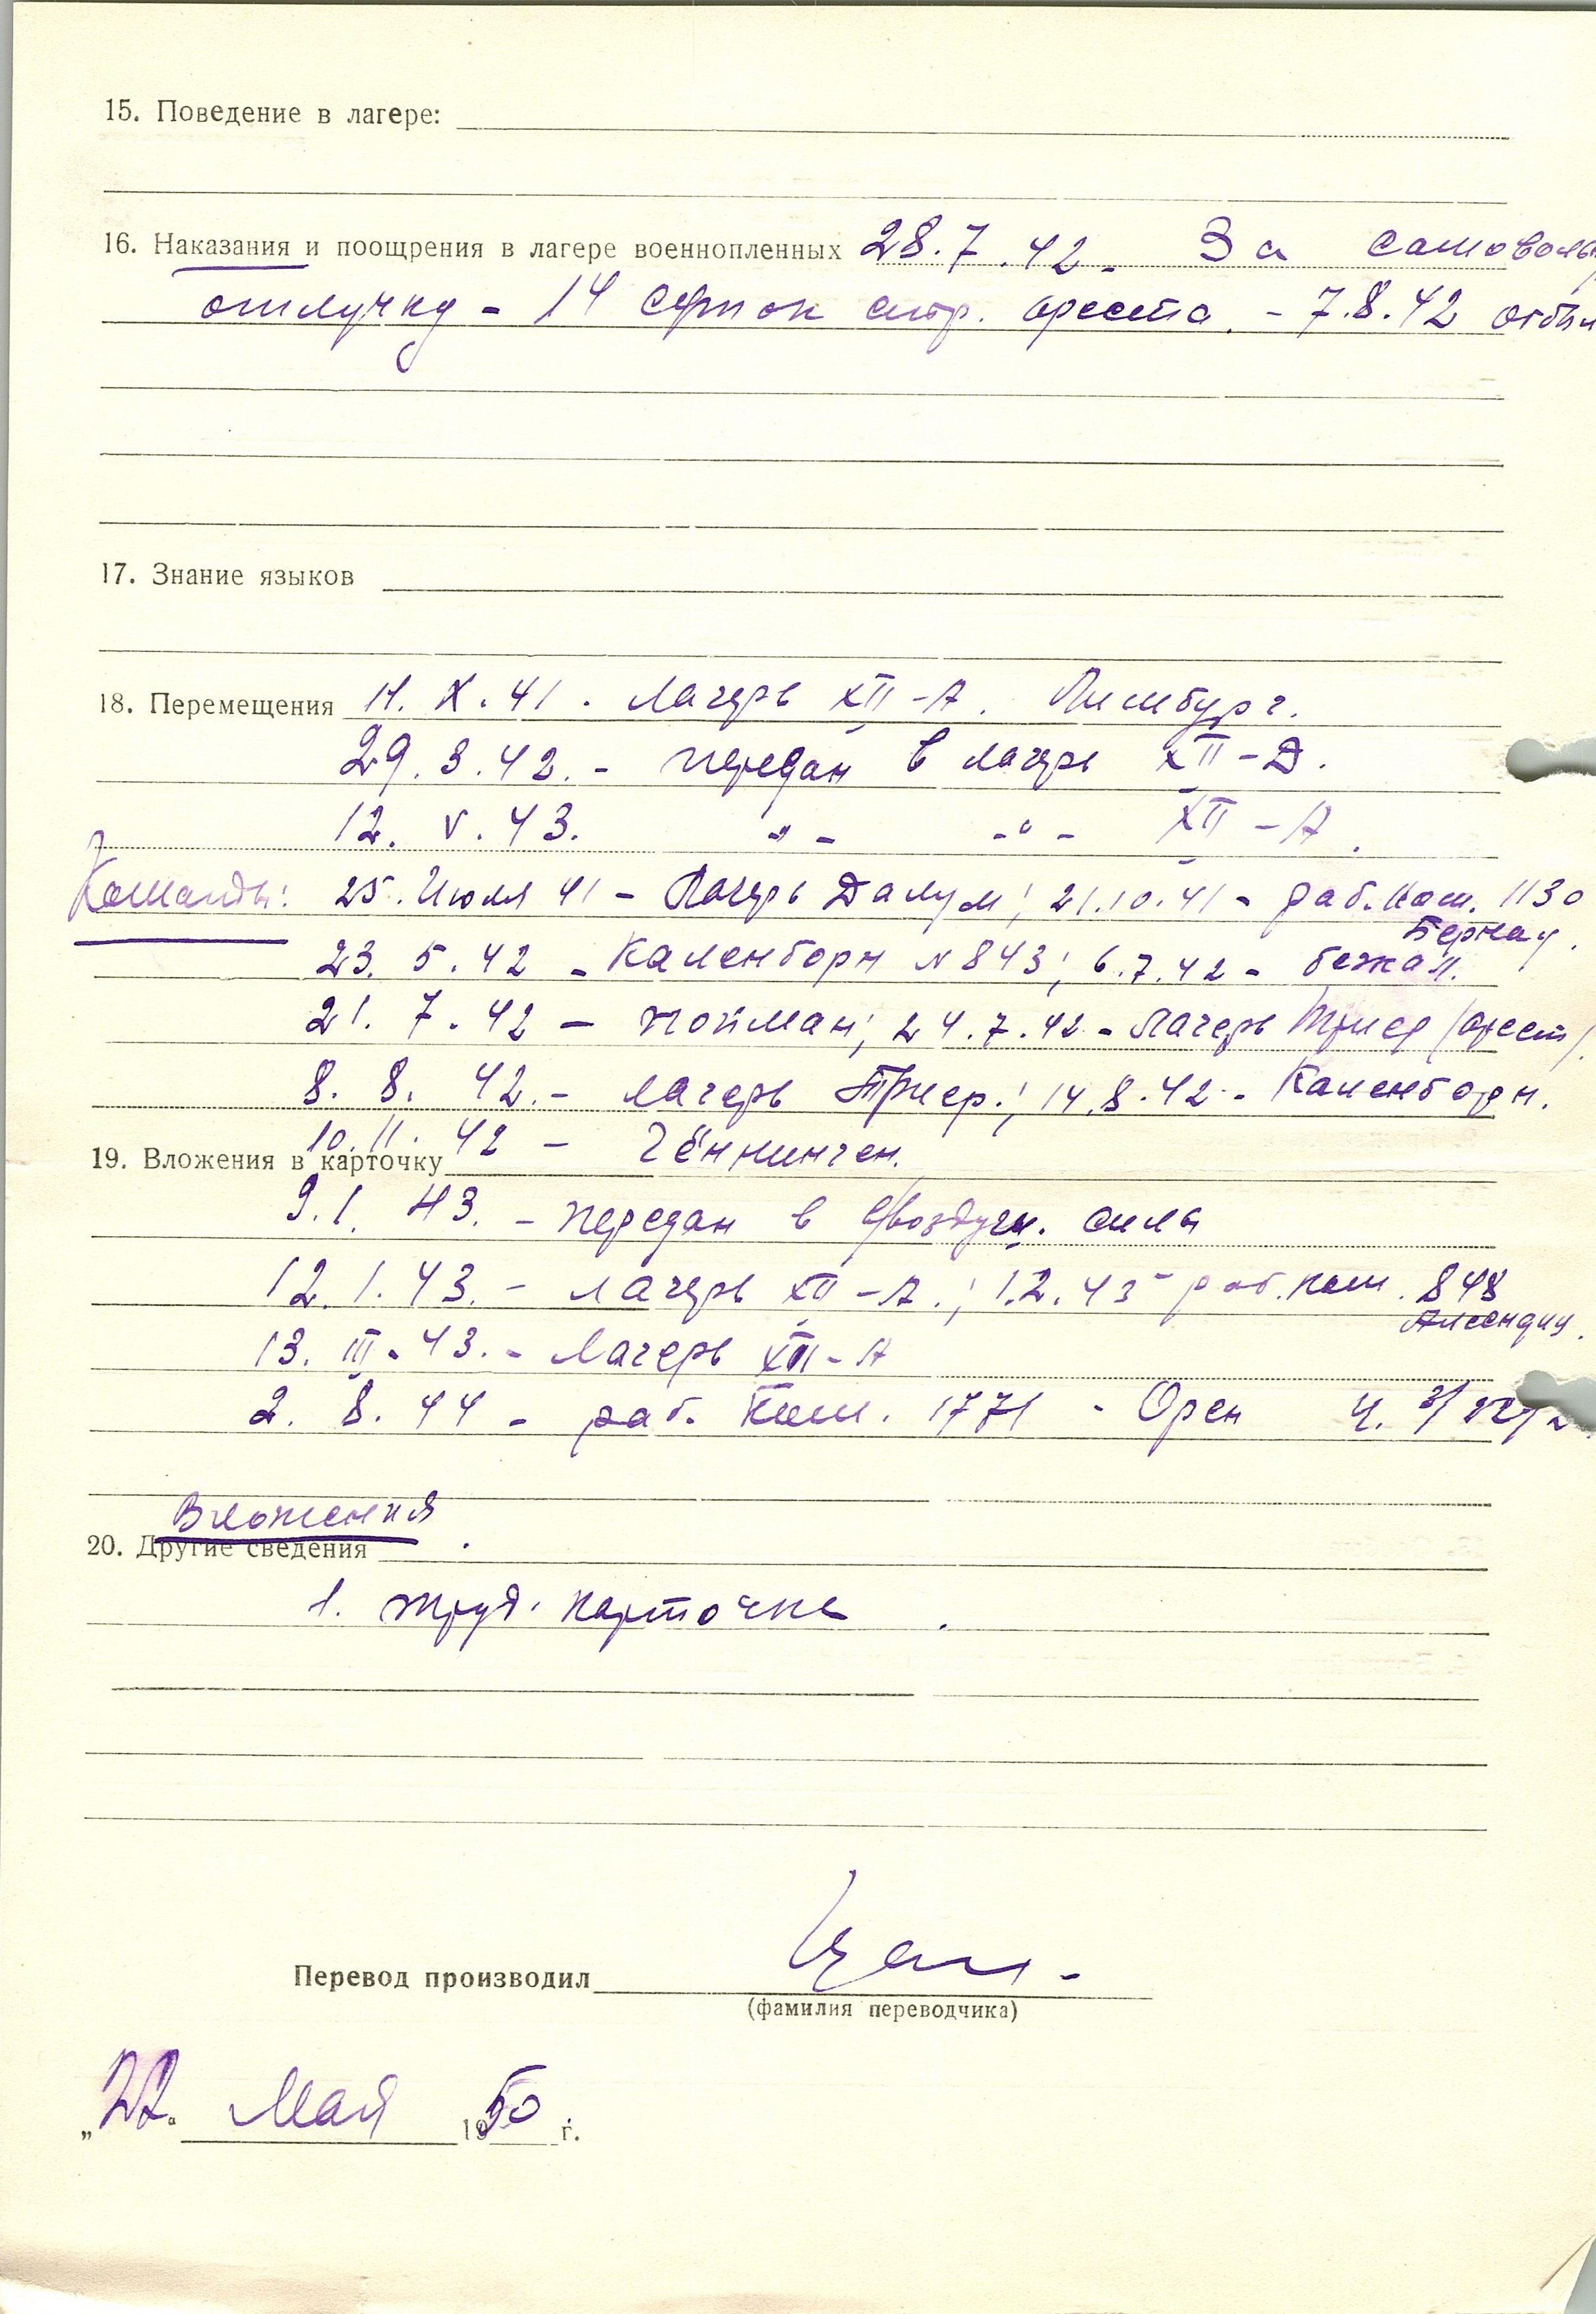 15. Поведение в лагере:
16. Наказания и поощрения в лагере военнопленных 28.7.42. За самоволь
отлучку - 14 суток стр. ареста. - 7.8.42 отбыл
17. Знание языков
18. Перемещения 11. X. 41. Лагерь XII-А. Лимбург.
29. 3. 42. - передан в лагерь XII-Д.
12. V. 43. -"- -"- XII-А.
Команды: 25. Июля 41 - Лагерь Далум; 21.10.41 - раб. ком. 1130
Бернау.
23. 5. 42 - Каленборн N 843; 6.7.42 - бежал.
21. 7. 42 - пойман; 24.7.42 - Лагерь Триер /арест/.
8. 8. 42. - лагерь Триер.; 14.8.42 - Каленборн.
10. 11. 42 - Гённинген.
19. Вложения в карточку
9. 1. 43. - передан в воздушн. силы
12. 1. 43. - лагерь XII-А.; 1.2.43 - раб. ком. 848
13. III. 43. - Лагерь XII-А
2. 8. 44 - раб. Ком. 1771 - Орен
Вложения
20. Другие сведения
1. труд. карточка
Перевод производил
(фамилия переводчика)
„22“ Мая 1950 г.